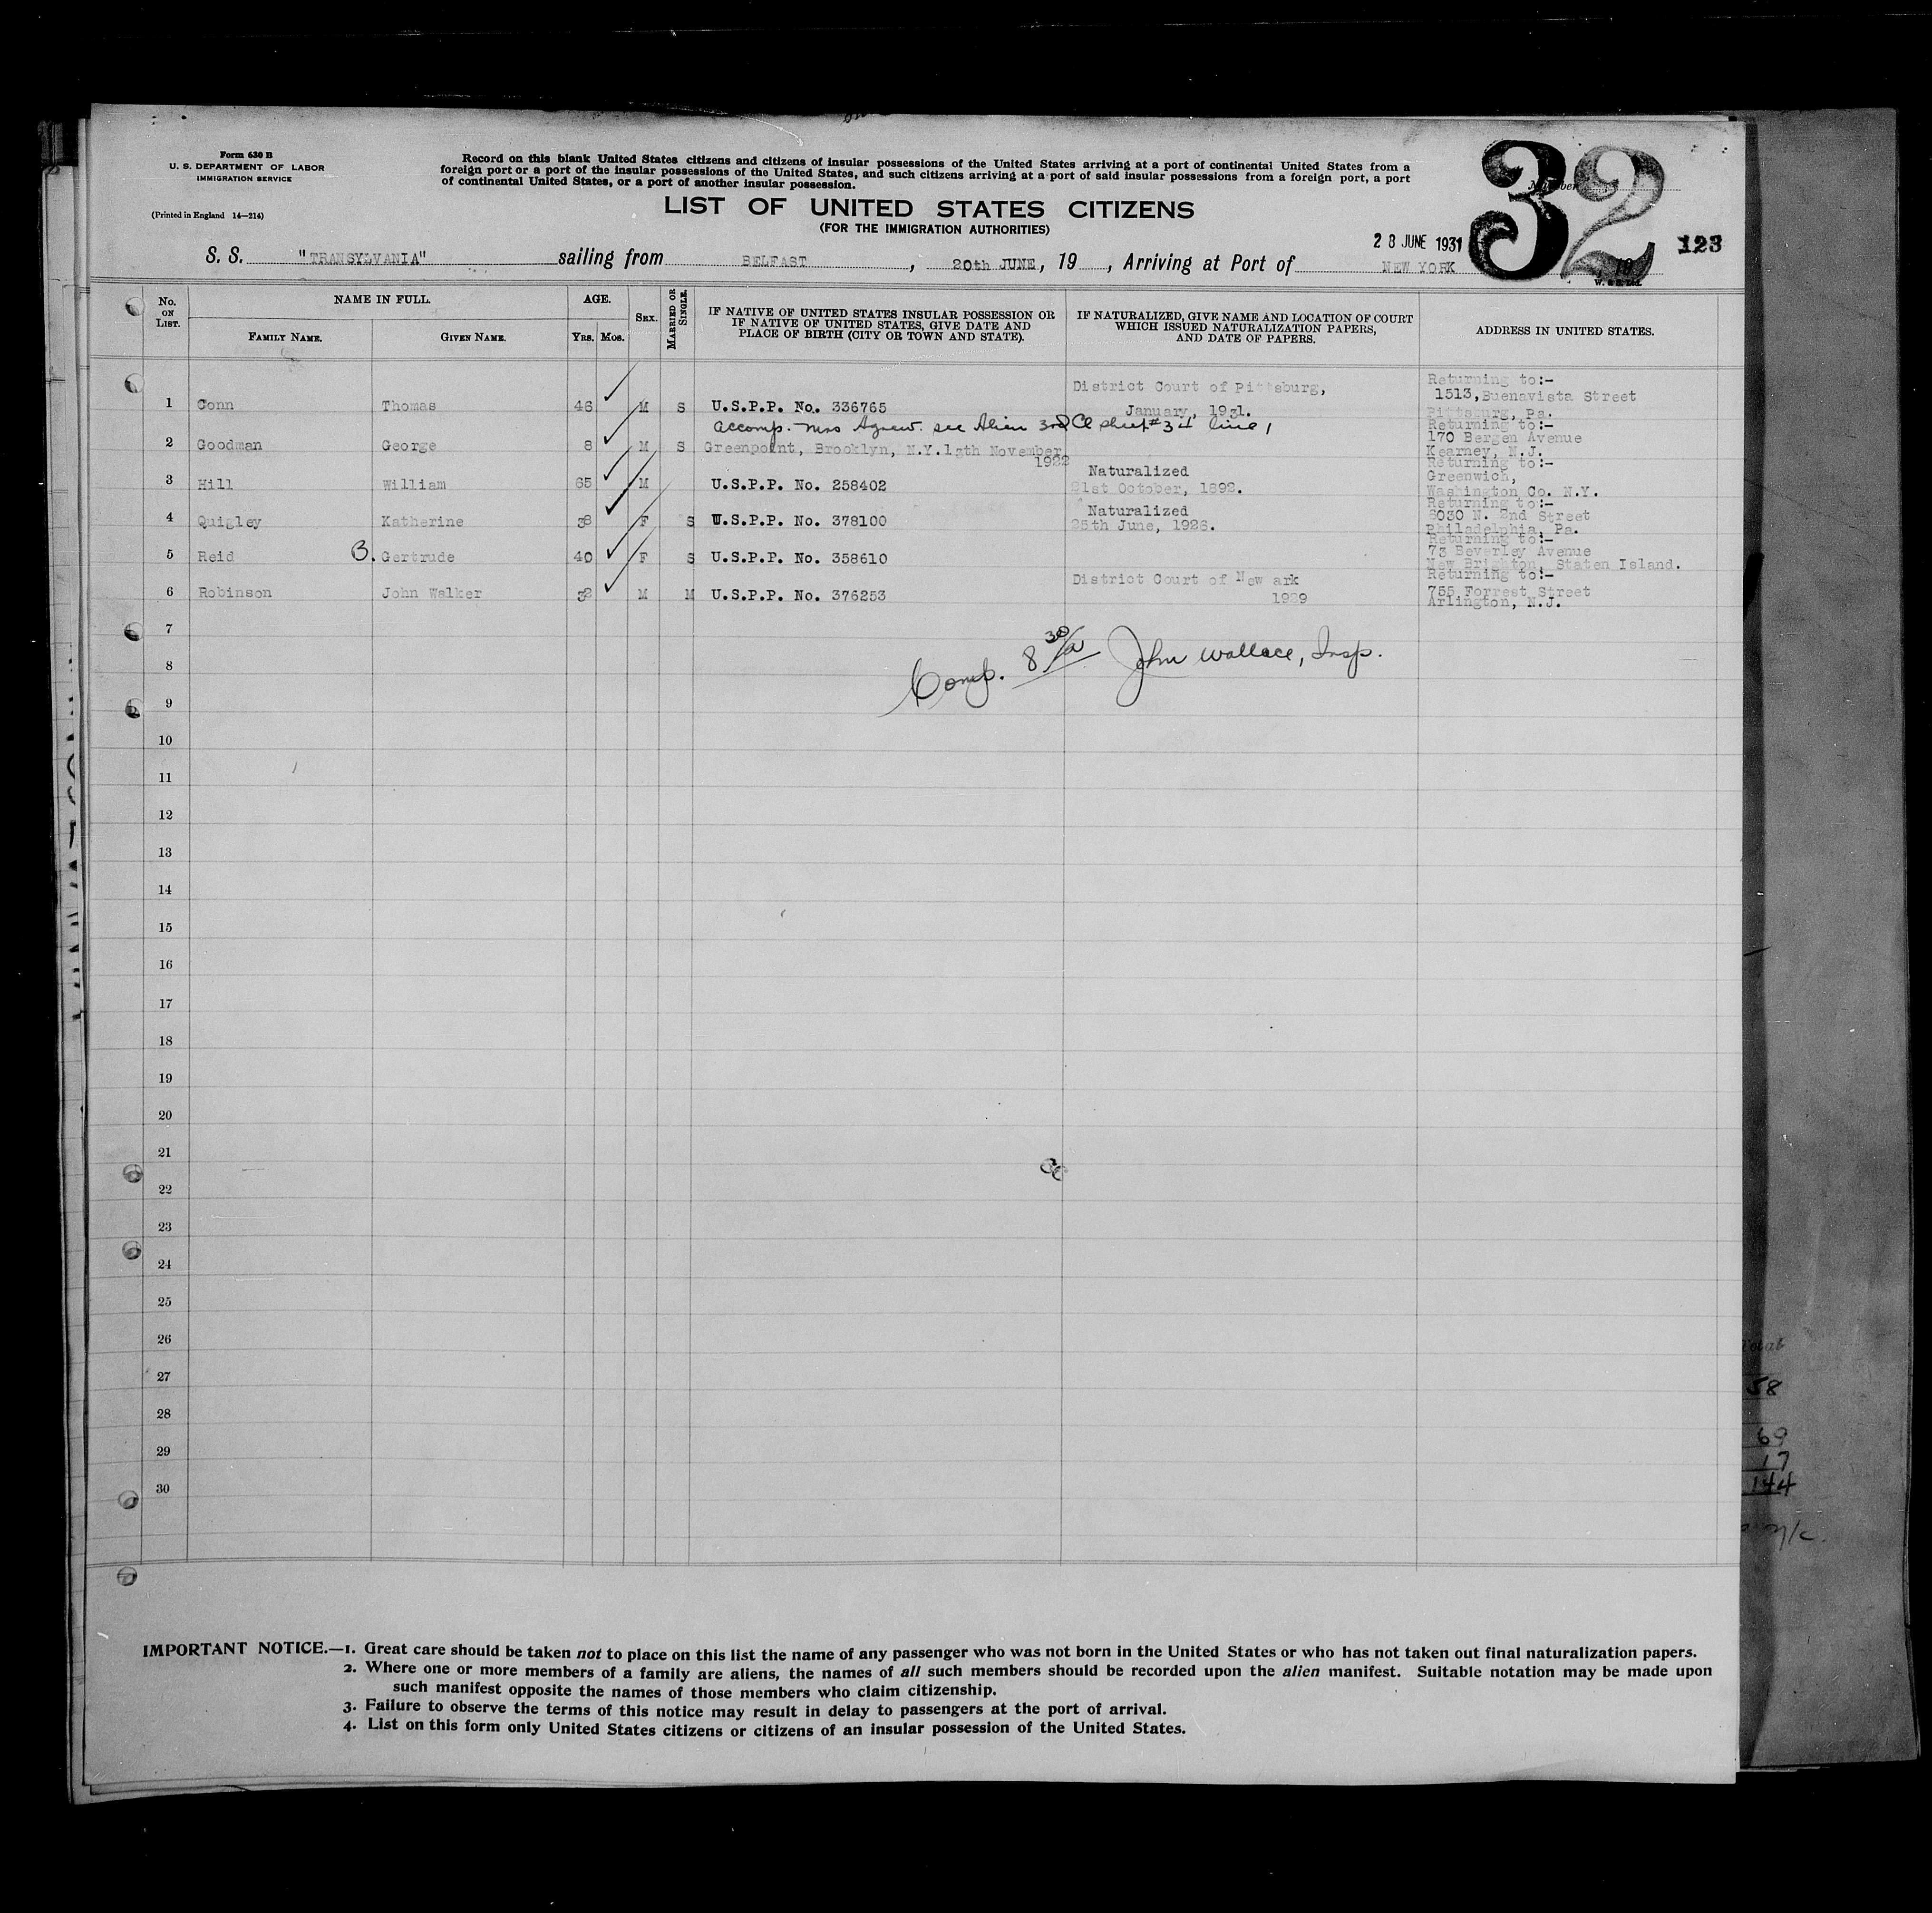 Form 630 B
U. S. DEPARTMENT OF LABOR
IMMIGRATION SERVICE
(Printed in England 14—214)
Record on this blank United States citizens and citizens of insular possessions of the United States arriving at a port of continental United States from a
foreign port or a port of the insular possessions of the United States, and such citizens arriving at a port of said insular possessions from a foreign port, a port
of continental United States, or a port of another insular possession.
LIST OF UNITED STATES CITIZENS
(FOR THE IMMIGRATION AUTHORITIES)
32
123
S. S. "TRANSYLVANIA" sailing from BELFAST, 20th JUNE, 19 , Arriving at Port of NEW YORK 28 JUNE 1931 19
W. & S. Ltd.
No. ON LIST.
NAME IN FULL.
FAMILY NAME.
GIVEN NAME.
AGE.
YRS. MOS.
SEX.
MARRIED OR SINGLE.
IF NATIVE OF UNITED STATES INSULAR POSSESSION OR
IF NATIVE OF UNITED STATES, GIVE DATE AND
PLACE OF BIRTH (CITY OR TOWN AND STATE).
IF NATURALIZED, GIVE NAME AND LOCATION OF COURT
WHICH ISSUED NATURALIZATION PAPERS,
AND DATE OF PAPERS.
ADDRESS IN UNITED STATES.
District Court of Pittsburg, Returning to:-
1 Conn Thomas 46 M S U.S.P.P. No. 336765 January, 1931. 1513, Buenavista Street
Pittsburg, Pa.
accomp. Mrs Agnew. see Alien 3rd Cl sheet #34 line 1
Returning to:-
2 Goodman George 8 M S Greenpoint, Brooklyn, N.Y. November 1922 170 Bergen Avenue
Kearney, N.J.
Naturalized Returning to:-
3 Hill William 65 M U.S.P.P. No. 258402 21st October, 1892. Greenwich,
Washington Co. N.Y.
Naturalized Returning to:-
4 Quigley Katherine 38 F S U.S.P.P. No. 378100 25th June, 1926. 6030 N. 2nd Street
Philadelphia, Pa.
Returning to:-
5 Reid B. Gertrude 40 F S U.S.P.P. No. 358610 73 Beverley Avenue
New Brighton, Staten Island.
District Court of New ark Returning to:-
6 Robinson John Walker 38 M M U.S.P.P. No. 376253 1929 755 Forrest Street
Arlington, N.J.
7
Comp. 8 30/a John Wallace, Insp.
8
9
10
11
12
13
14
15
16
17
18
19
20
21
22
23
24
25
26
27
28
29
30
Total
58
69
17
144
IMPORTANT NOTICE.—1. Great care should be taken not to place on this list the name of any passenger who was not born in the United States or who has not taken out final naturalization papers.
2. Where one or more members of a family are aliens, the names of all such members should be recorded upon the alien manifest. Suitable notation may be made upon
such manifest opposite the names of those members who claim citizenship.
3. Failure to observe the terms of this notice may result in delay to passengers at the port of arrival.
4. List on this form only United States citizens or citizens of an insular possession of the United States.